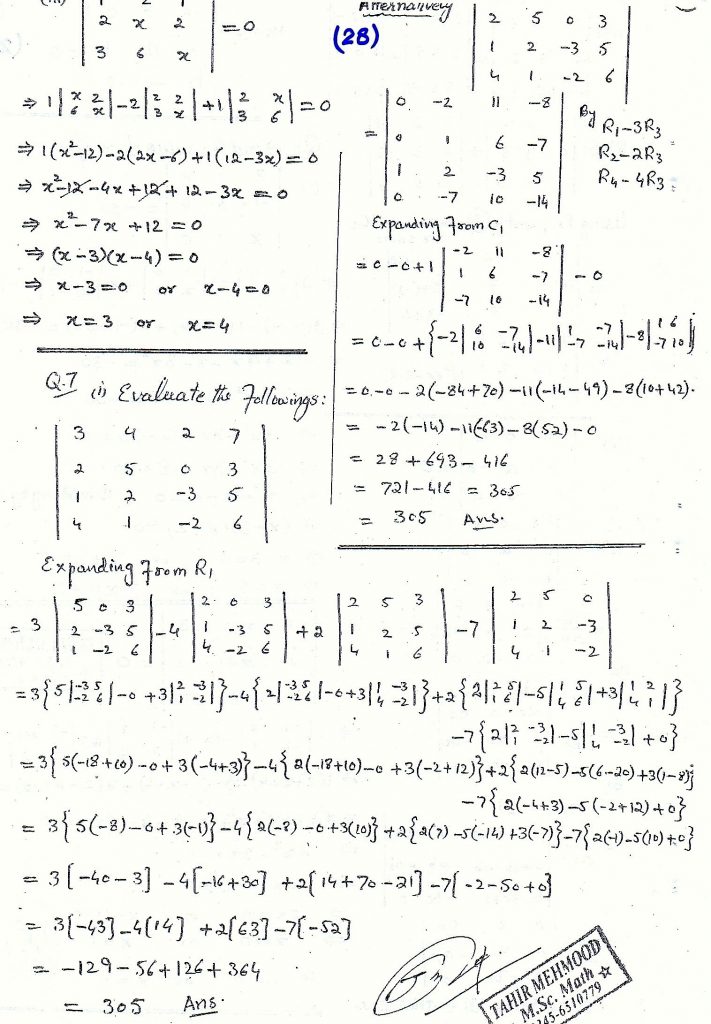 (28)
| 2 x 2 | = 0
| 3 6 x |
⇒ 1|x 2; 6 x| - 2|2 2; 3 x| + 1|2 x; 3 6| = 0
⇒ 1(x²-12) - 2(2x-6) + 1(12-3x) = 0
⇒ x²-12-4x+12+12-3x = 0
⇒ x²-7x+12 = 0
⇒ (x-3)(x-4) = 0
⇒ x-3=0 or x-4=0
⇒ x=3 or x=4
Q.7 (i) Evaluate the Followings:
| 3 4 2 7 |
| 2 5 0 3 |
| 1 2 -3 5 |
| 4 1 -2 6 |
Alternatively
| 2 5 0 3 |
| 1 2 -3 5 |
| 4 1 -2 6 |
= | 0 -2 11 -8 |
| 0 1 6 -7 |
| 1 2 -3 5 |
| 0 -7 10 -14 |
By R₁-3R₃
R₂-2R₃
R₄-4R₃
Expanding From C₁
= 0-0+1 | -2 11 -8 | - 0
| 1 6 -7 |
| -7 10 -14 |
= 0-0+{-2|6 -7; 10 -14| -11|1 -7; -7 -14| -8|1 6; -7 10|}
= 0-0-2(-84+70)-11(-14-49)-8(10+42).
= -2(-14)-11(-63)-8(52)-0
= 28+693-416
= 721-416 = 305
= 305 Ans.
Expanding From R₁
= 3 |5 0 3; 2 -3 5; 1 -2 6| -4 |2 0 3; 1 -3 5; 4 -2 6| +2 |2 5 3; 1 2 5; 4 1 6| -7 |2 5 0; 1 2 -3; 4 1 -2|
= 3{5|-3 5; -2 6| -0 +3|2 -3; 1 -2|} -4{2|-3 5; -2 6| -0+3|1 -3; 4 -2|} +2{2|2 5; 1 6| -5|1 5; 4 6| +3|1 2; 4 1|}
-7{2|2 -3; 1 -2| -5|1 -3; 4 -2| +0}
= 3{5(-18+10) -0+3(-4+3)} -4{2(-18+10)-0+3(-2+12)} +2{2(12-5)-5(6-20)+3(1-8)}
-7{2(-4+3)-5(-2+12)+0}
= 3{5(-8)-0+3(-1)} -4{2(-8)-0+3(10)} +2{2(7)-5(-14)+3(-7)} -7{2(-1)-5(10)+0}
= 3[-40-3] -4[-16+30] +2[14+70-21] -7[-2-50+0]
= 3[-43] -4[14] +2[63] -7[-52]
= -129-56+126+364
= 305 Ans.
TAHIR MEHMOOD
M.Sc. Math ☆
345-6510779